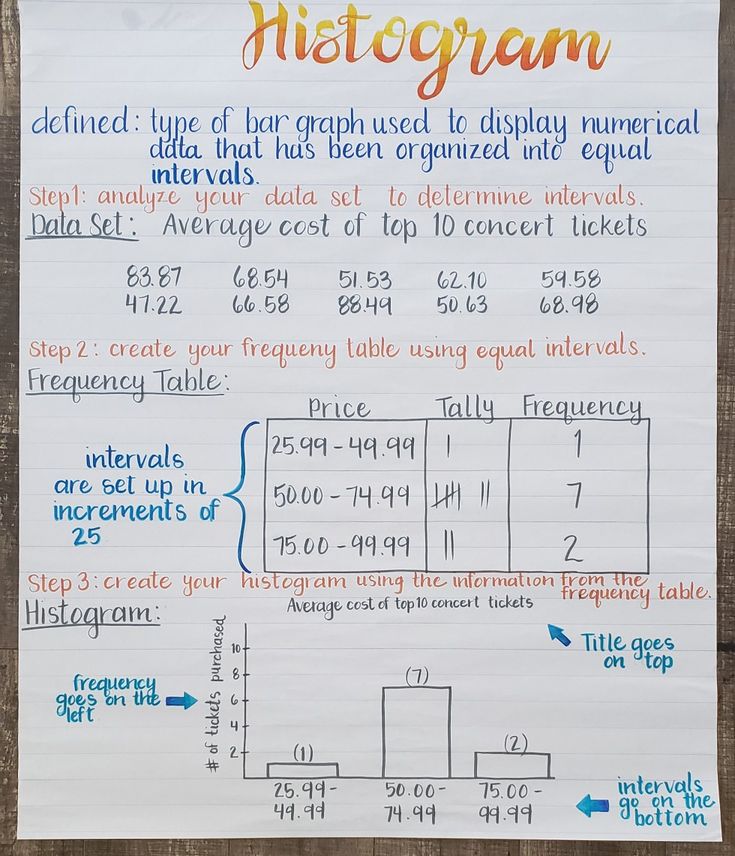 Histogram
defined: type of bar graph used to display numerical
data that has been organized into equal
intervals.
Step1: analyze your data set to determine intervals.
Data Set: Average cost of top 10 concert tickets
83.87 68.54 51.53 62.10 59.58
47.22 66.58 88.49 50.63 68.98
Step 2: create your frequeny table using equal intervals.
Frequency Table:
Price Tally Frequency
intervals
are set up in
increments of
25
25.99 - 49.99 | 1
50.00 - 74.99 |||| || 7
75.00 - 99.99 || 2
Step 3: create your histogram using the information from the
frequency table.
Histogram:
Average cost of top 10 concert tickets
Title goes
on top
frequency
goes on the
left
# of tickets purchased
10
8
6
4
2
(1)
(7)
(2)
25.99-
49.99
50.00-
74.99
75.00-
99.99
intervals
go on the
bottom